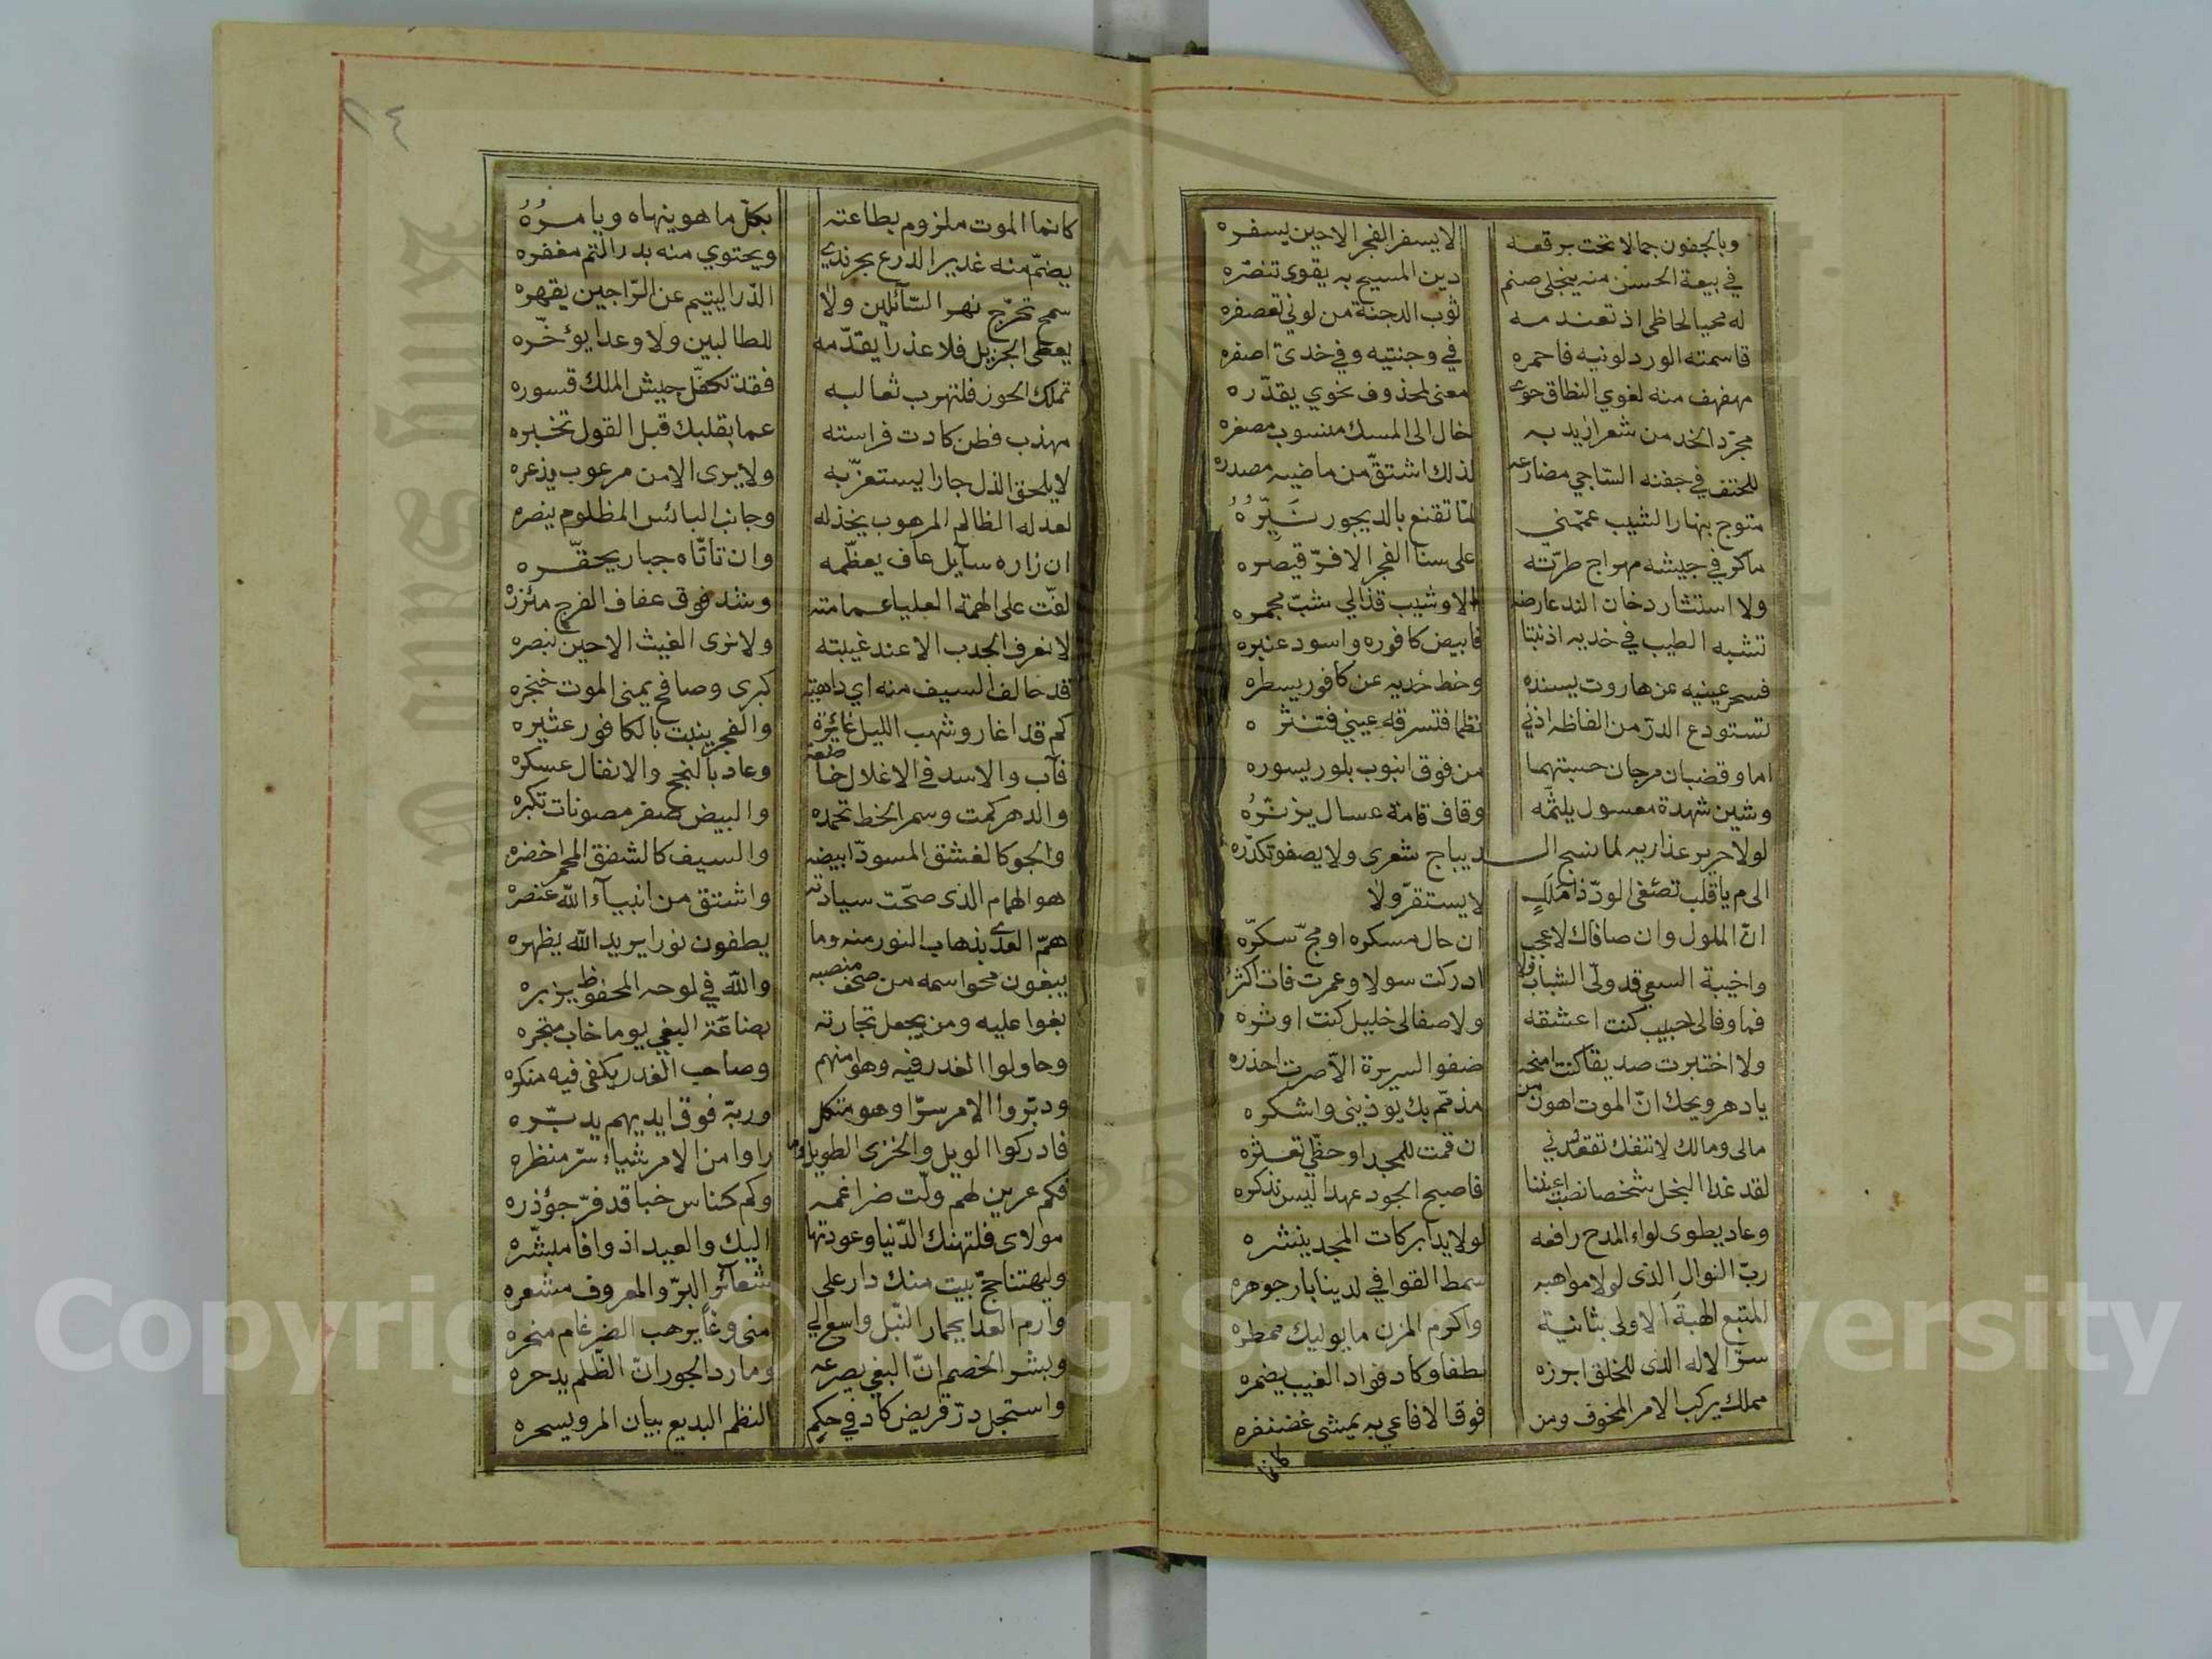 وبالجفون جمالا تحت برقعه لا يسفر الفجر الا حين يسفره
في بيعة الحسن منه ينجلي صنم دين المسيح به يقوى تنصره
له محيا لحاظي اذ تعندمه ثوب الدجنة من لوني تعصفره
قاسمته الورد لونيه فاحمره في وجنتيه وفي خديّ اصفره
مهفهف منه لغوي النطاق حوى معنى لمحذوف نحوي يقدّره
مجرّد الخد من شعر ازيد به خال الى المسك منسوب مصغره
للحتف في جفنه الساجي مضارعه لذاك اشتقّ من ماضيه مصدره
متوج بنهار الشيب عممني لمّا تقنع بالديجور نيّره
ما كر في جيشه مهراج طرّته على سنا الفجر الا فرّ قيصره
ولا استثار دخان الند عارضه الا وشيب قذالي شبّ مجمره
تشبه الطيب في خديه اذ نبتا فابيض كافوره واسود عنبره
فسحر عينيه عن هاروت يسنده وخط خديه عن كافور يسطره
تستودع الدرّ من الفاظه اذني نظما فتسرقه عيني فتنثره
اما وقضبان مرجان حسبتهما من فوق انبوب بلور يسوره
وشين شهدة معسول يلثمه وقاف قامة عسال يزنره
لولا حرير عذاريه لما نسج الديباج شعرى ولا يصفو تكدّره
الى م يا قلب تصغي الودّ ذا ملل لا يستقرّ ولا
انّ الملول وان صافاك لا عجب ان حال مسكره او مجّ سكّره
واخيبة السعي قد ولّى الشباب ولا ادركت سولا وعمرت فات اكثره
فما وفا لي حبيب كنت اعشقه ولا صفا لي خليل كنت اوثره
ولا اختبرت صديقا كنت امنحه صفو السريرة الا صرت احذره
يا دهر ويحك انّ الموت اهون من مذمّم بك يوذيني واشكره
مالى ومالك لا تنفك تقعدني ان قمت للمجد او حظّي تعثره
لقد غدا البخل شخصا نصب اعيننا فاصبح الجود عهدا ليس نذكره
وعاد يطوى لواء المدح رافعه لولا يدا بركات المجد ينشره
ربّ النوال الذى لولا مواهبه سمط القوافي لدينا بار جوهره
المتبع الهبة الاولى بثانية واكرم المزن ما يوليك ممطره
سرّ الاله الذى للخلق ابرزه لطفا وكاد فواد الغيب يضمره
مملك يركب الامر المخوف ومن فوق الافاعي به يمشى غضنفره
كانما
كانما الموت ملزوم بطاعته بكل ما هو ينهاه ويامره
يضمّ منه غدير الدرع بحر ندى ويحتوي منه بدر التم مغفره
سمح تحرّج نهر السآئلين ولا الدّر اليتيم عن الرّاجين يقهره
يعطى الجزيل فلا عذرا يقدّمه للطالبين ولا وعدا يؤخّره
تملك الحوز فلتهرب ثعالبه فقد تكفّل جيش الملك قسوره
مهذب فطن كادت فراسته عما بقلبك قبل القول تخبره
لا يلحق الذل جارا يستعزّ به ولا يرى الامن مرعوب يذعره
لعدله الظالم المرهوب يخذله وجانب البائس المظلوم ينصره
ان زاره سآيل عاف يعظّمه وان تاتّاه جبار يحقّره
لفّت على الهمة العليا عمامته وشد فوق عفاف الفرج مئزره
لا نعرف الجدب الا عند غيبته ولا نرى الغيث الا حين نبصره
قد حالف السيف منه اي داهية كبرى وصافح يمنى الموت خنجره
كم قد اغار وشهب الليل غائرة والفجر ينبت بالكافور عثيره
فآب والاسد في الاغلال خاضعة وعاد بالنجح والانفال عسكره
والدهر كمت وسمر الخط تحمده والبيض صفر مصونات تكبره
والجو كالغسق المسودّ ابيضه والسيف كالشفق المحمر اخضره
هو الهمام الذى صحّت سيادته واشتق من انبيآء الله عنصره
همّ العدى بذهاب النور منه وما يطفون نورا يريد الله يظهره
يبغون محو اسمه من صحف منصبه والله في لوحه المحفوظ يزبره
بغوا عليه ومن يجعل تجارته بضاعة البغي يوما خاب متجره
وحاولوا الغدر فيه وهو امنهم وصاحب الغدر يكفي فيه منكره
ودبّروا الامر سرّا وهو متكل وربّه فوق ايديهم يدبّره
فادركوا الويل والخزى الطويل وما راوا من الامر شياء سرّ منظره
فكم عرين لهم ولّت ضراغمه وكم كناس خبا قد فرّ جؤذره
مولاى فلتهنك الدّنيا وعودتها اليك والعيد اذ وافا مبشّره
وليهننا حجّ بيت منك دار على شعآئر البرّ والمعروف مشعره
وارم العدا بجمار النّبل واسع الي منى وغاً يرهب الضرغام منحره
وبشر الخصم انّ البغي يصرعه ومارد الجور انّ الظّلم يدحره
واستجل درّ قريض كاد في حكم النظم البديع بيان المرو يسحره